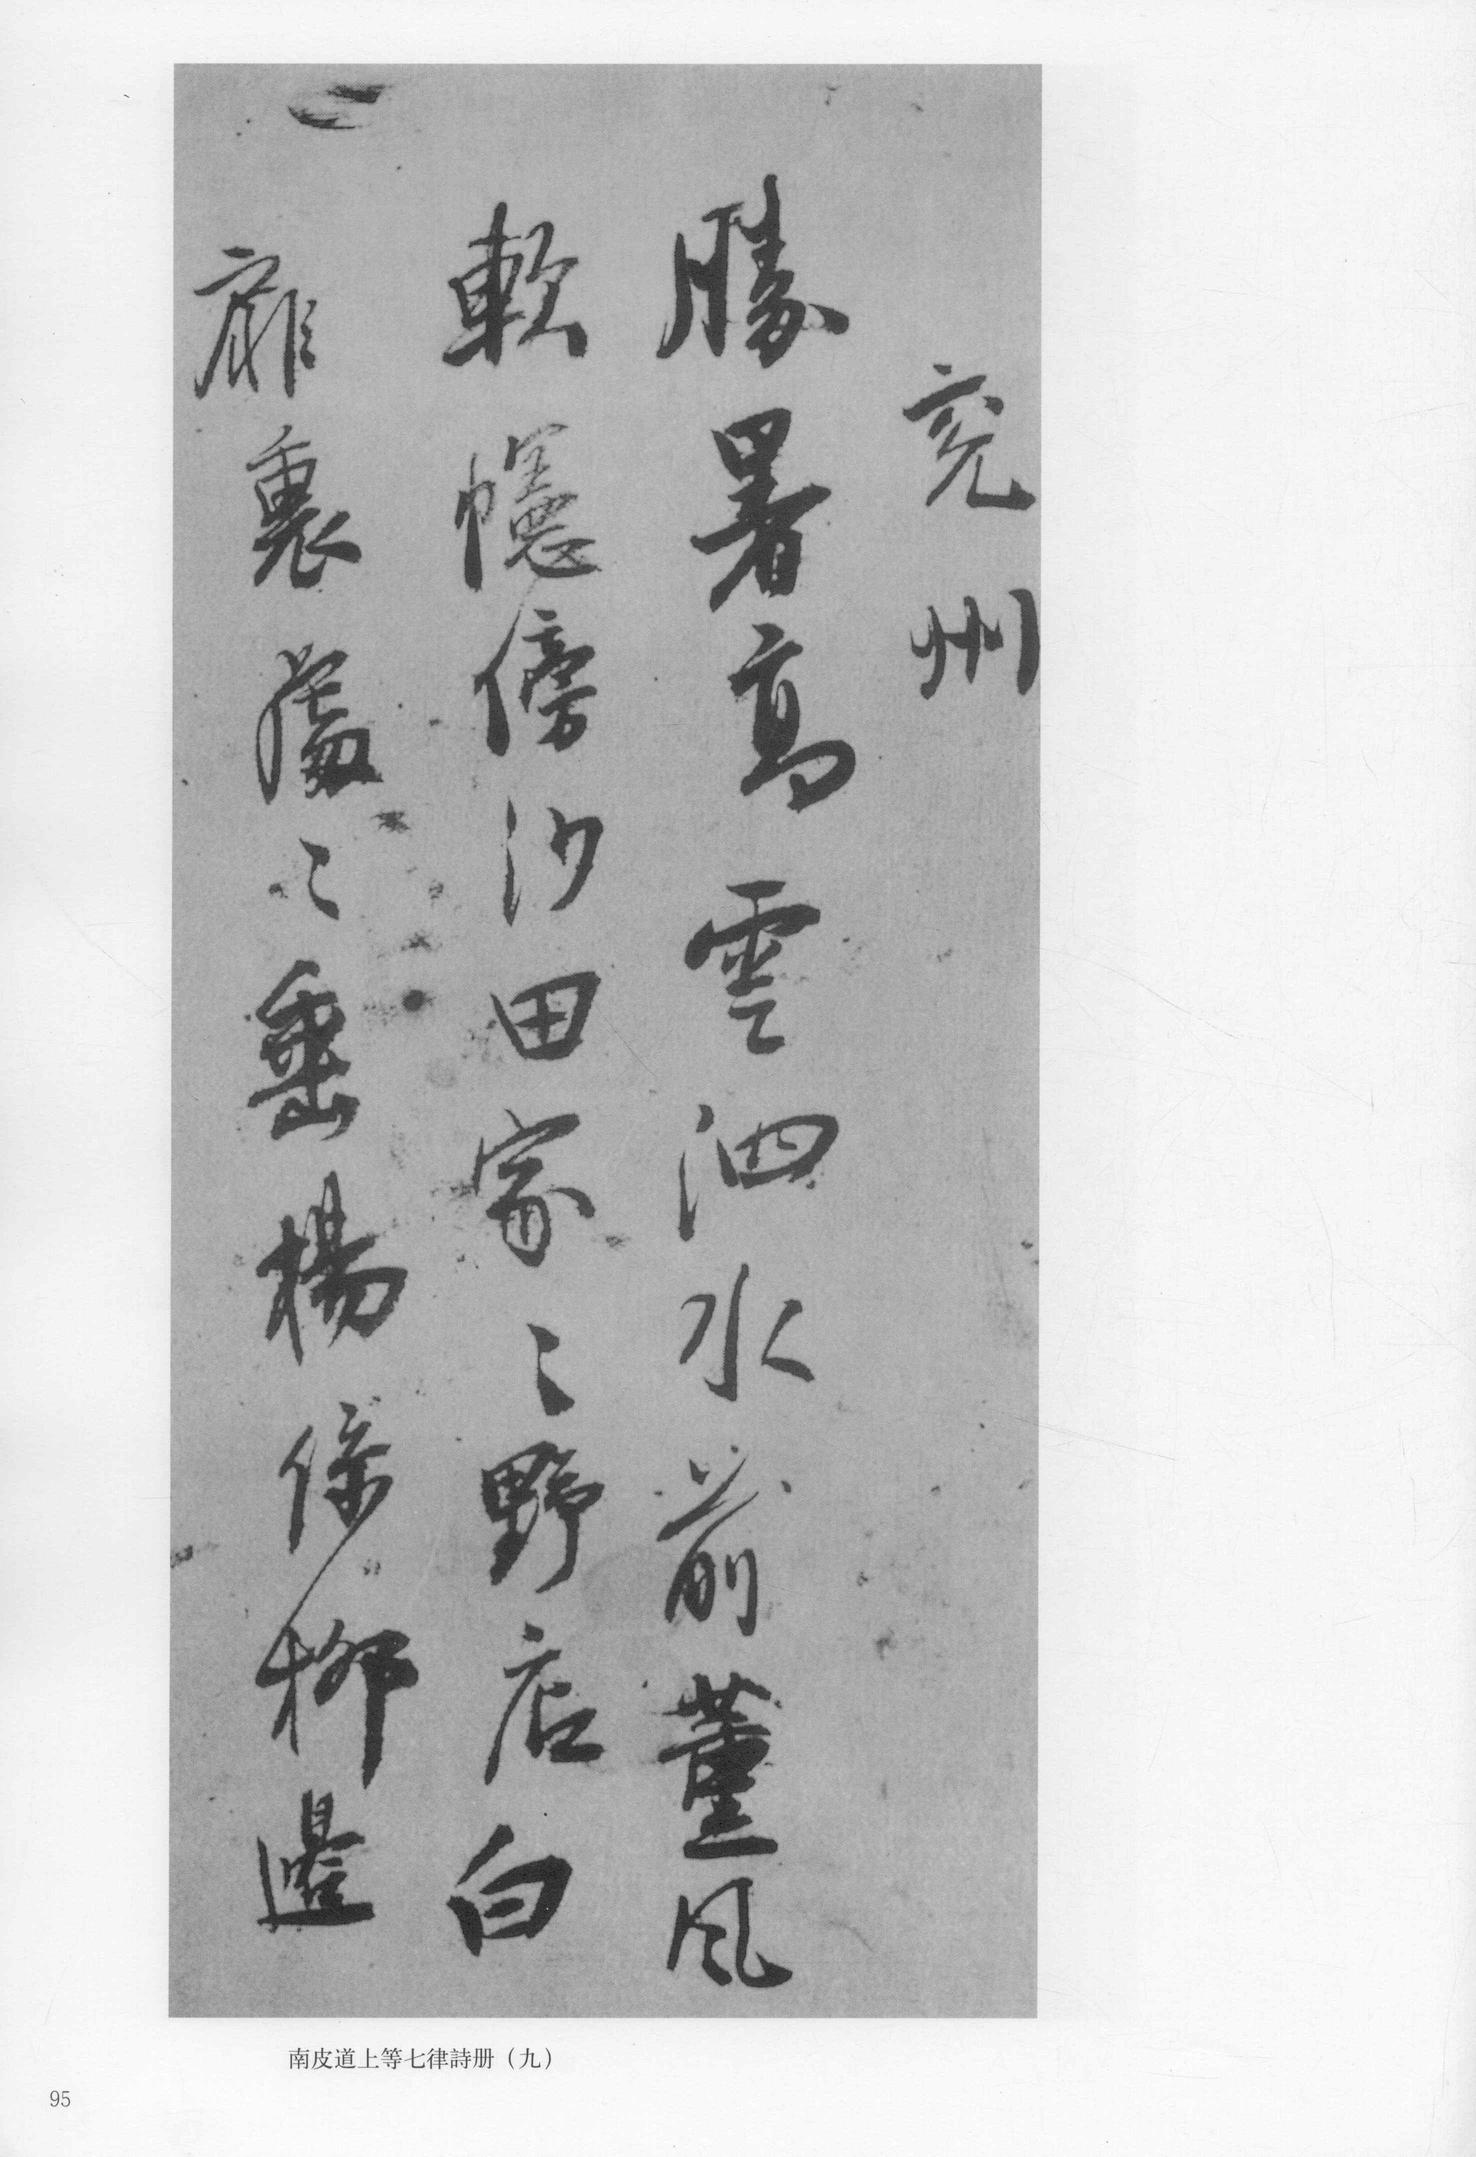 兖州
勝暑高雲泗水前薰風
軟幰傍田家々野店白
裏處々垂楊條柳邊
南皮道上等七律詩册（九）
95